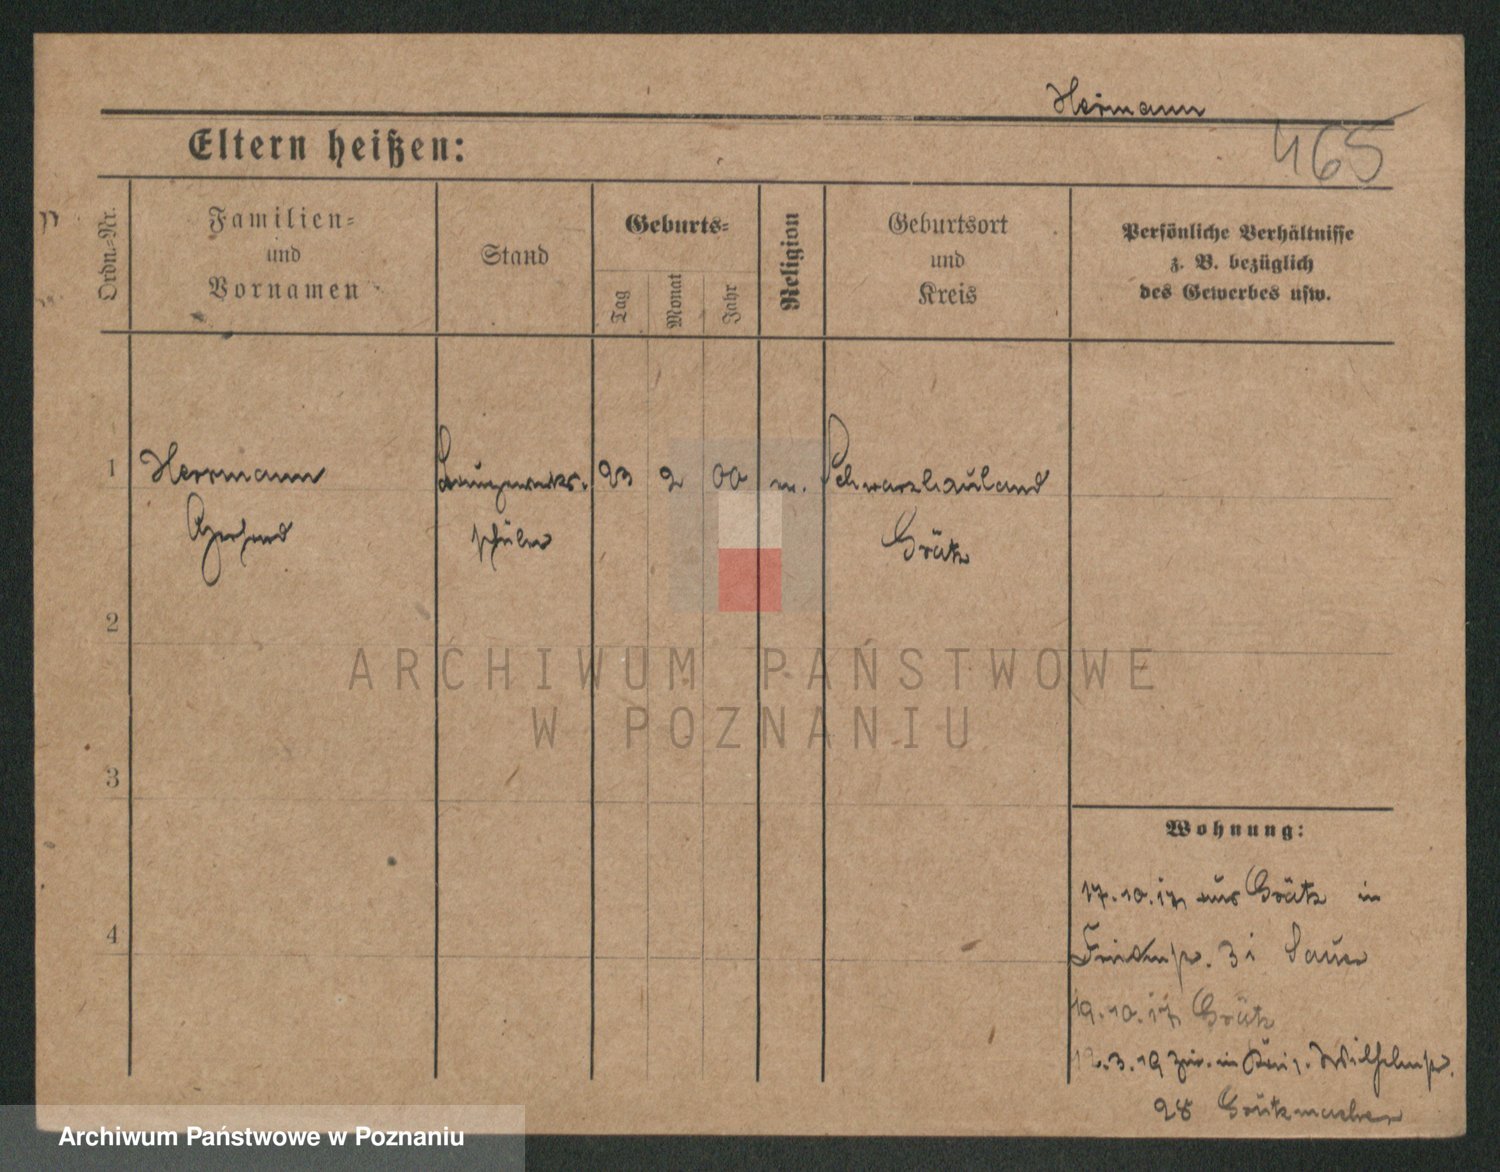 Herrmann
465
Eltern heißen:
Ordn.-Nr.
Familien-
und
Vornamen
Stand
Geburts-
Tag
Monat
Jahr
Religion
Geburtsort
und
Kreis
Persönliche Verhältnisse
z. B. bezüglich
des Gewerbes usw.
1 Herrmann Baugewerks- 23 2 00 ev. Schwarzhauland
schüler Grätz
2
3
4
ARCHIWUM PAŃSTWOWE
W POZNANIU
Wohnung:
17.10.17 aus Grätz in
31 Sauer
19.10.17 Grätz
12.3.19 zur. in Kais. Wilhelmstr.
28 Grützmacher
Archiwum Państwowe w Poznaniu